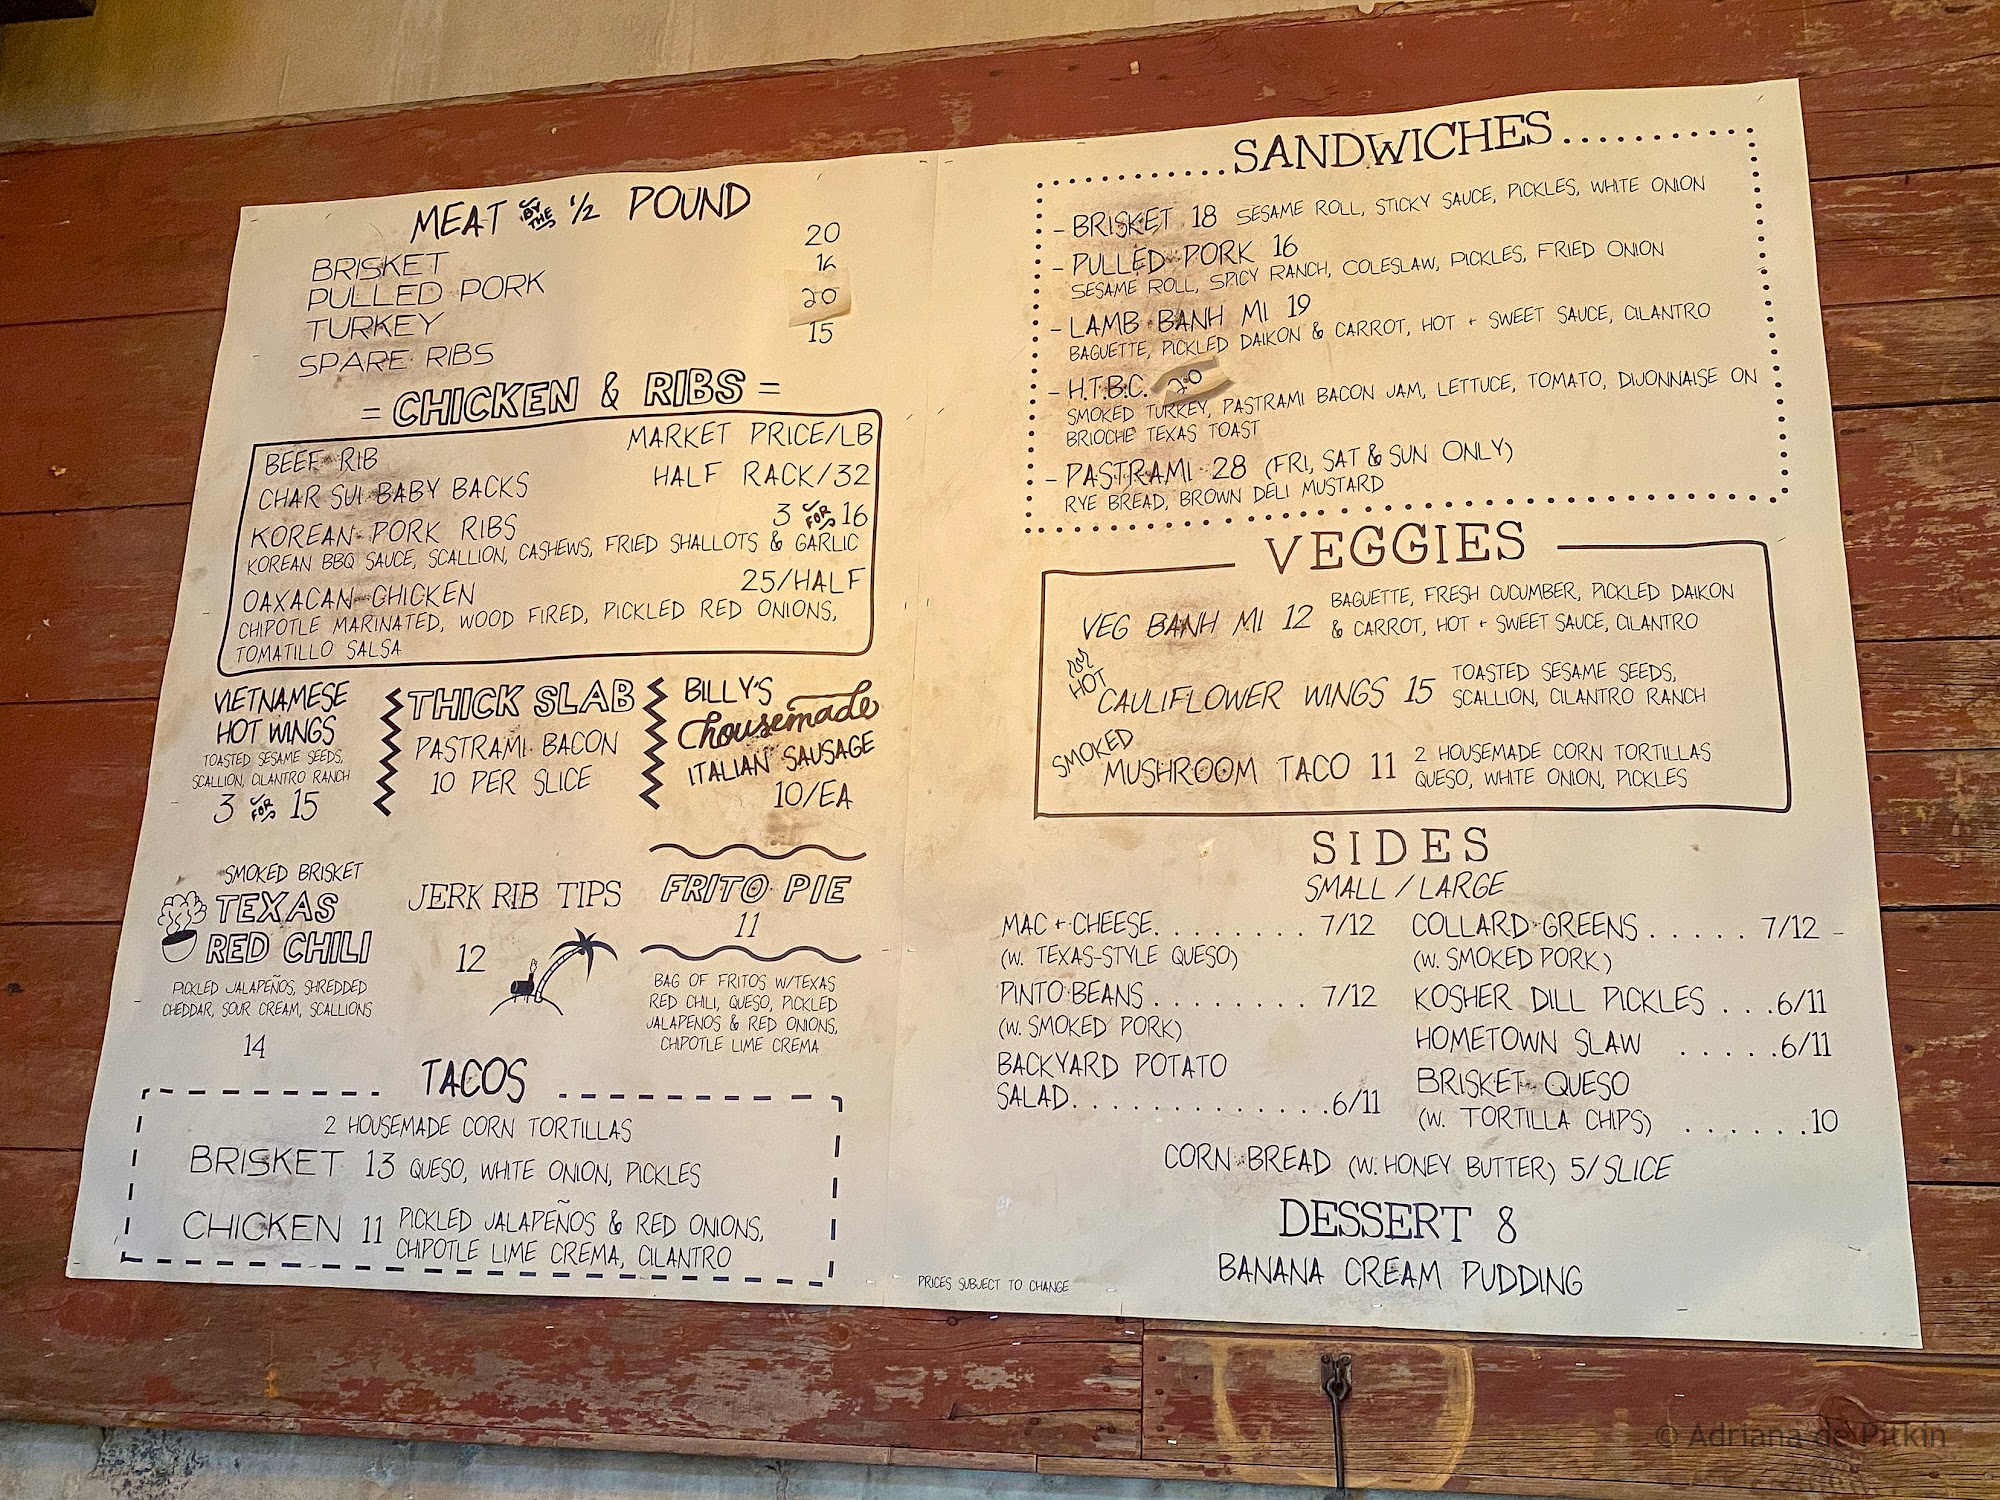 MEAT BY THE 1/2 POUND
BRISKET 20
PULLED PORK 16
TURKEY 20
SPARE RIBS 15
= CHICKEN & RIBS =
BEEF RIB MARKET PRICE/LB
CHAR SUI BABY BACKS HALF RACK/32
KOREAN PORK RIBS 3 FOR 16
KOREAN BBQ SAUCE, SCALLION, CASHEWS, FRIED SHALLOTS & GARLIC
OAXACAN CHICKEN 25/HALF
CHIPOTLE MARINATED, WOOD FIRED, PICKLED RED ONIONS,
TOMATILLO SALSA
VIETNAMESE
HOT WINGS
TOASTED SESAME SEEDS,
SCALLION, CILANTRO RANCH
3 FOR 15
THICK SLAB
PASTRAMI BACON
10 PER SLICE
BILLY'S
housemade
ITALIAN SAUSAGE
10/EA
SMOKED BRISKET
TEXAS
RED CHILI
PICKLED JALAPEÑOS, SHREDDED
CHEDDAR, SOUR CREAM, SCALLIONS
14
JERK RIB TIPS
12
FRITO PIE
11
BAG OF FRITOS W/TEXAS
RED CHILI, QUESO, PICKLED
JALAPENOS & RED ONIONS,
CHIPOTLE LIME CREMA
TACOS
2 HOUSEMADE CORN TORTILLAS
BRISKET 13 QUESO, WHITE ONION, PICKLES
CHICKEN 11 PICKLED JALAPEÑOS & RED ONIONS,
CHIPOTLE LIME CREMA, CILANTRO
SANDWICHES
- BRISKET 18 SESAME ROLL, STICKY SAUCE, PICKLES, WHITE ONION
- PULLED PORK 16
SESAME ROLL, SPICY RANCH, COLESLAW, PICKLES, FRIED ONION
- LAMB BANH MI 19
BAGUETTE, PICKLED DAIKON & CARROT, HOT + SWEET SAUCE, CILANTRO
- H.T.B.C. 20
SMOKED TURKEY, PASTRAMI BACON JAM, LETTUCE, TOMATO, DIJONNAISE ON
BRIOCHE TEXAS TOAST
- PASTRAMI 28 (FRI, SAT & SUN ONLY)
RYE BREAD, BROWN DELI MUSTARD
VEGGIES
VEG BANH MI 12 BAGUETTE, FRESH CUCUMBER, PICKLED DAIKON
& CARROT, HOT + SWEET SAUCE, CILANTRO
HOT CAULIFLOWER WINGS 15 TOASTED SESAME SEEDS,
SCALLION, CILANTRO RANCH
SMOKED MUSHROOM TACO 11 2 HOUSEMADE CORN TORTILLAS
QUESO, WHITE ONION, PICKLES
SIDES
SMALL / LARGE
MAC + CHEESE. . . . . . . . 7/12
(W. TEXAS-STYLE QUESO)
PINTO BEANS . . . . . . . . 7/12
(W. SMOKED PORK)
BACKYARD POTATO
SALAD. . . . . . . . . . . . . .6/11
COLLARD GREENS . . . . . 7/12
(W. SMOKED PORK)
KOSHER DILL PICKLES . . .6/11
HOMETOWN SLAW . . . . .6/11
BRISKET QUESO
(W. TORTILLA CHIPS) . . . . . .10
CORN BREAD (W. HONEY BUTTER) 5/SLICE
DESSERT 8
BANANA CREAM PUDDING
PRICES SUBJECT TO CHANGE
© Adriana de Pitkin